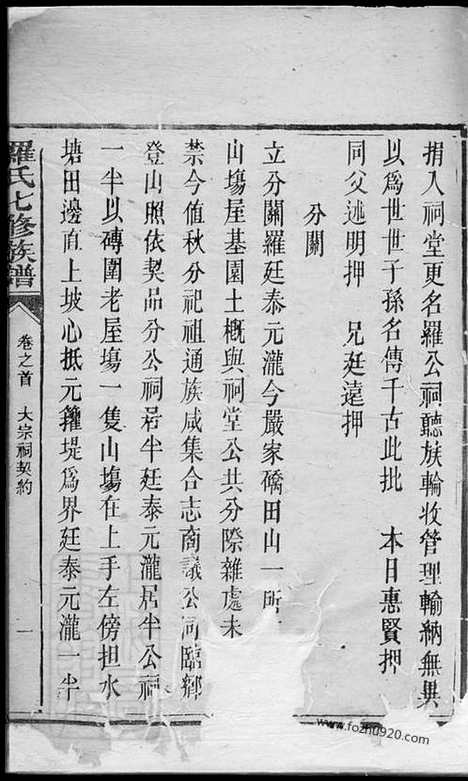 捐入祠堂更名羅公祠聽族輪收管理輸納無異
以爲世世子孫名傳千古此批 本日惠賢押
同父述明押 兄廷遠押
分關
立分關羅廷泰元瀧今嚴家礄田山一所
山塲屋基園土概與祠堂公共分際雜處未
禁今值秋分祀祖通族咸集合志商議公同臨鄉
登山照依契品分公祠居半廷泰元瀧居半公祠
一半以磚圍老屋塲一隻山塲在上手左傍担水
塘田邊直上坡心抵元籬堤爲界廷泰元瀧一半
羅氏七修族譜
卷之首 大宗祠契約
一
www.fozhu920.com